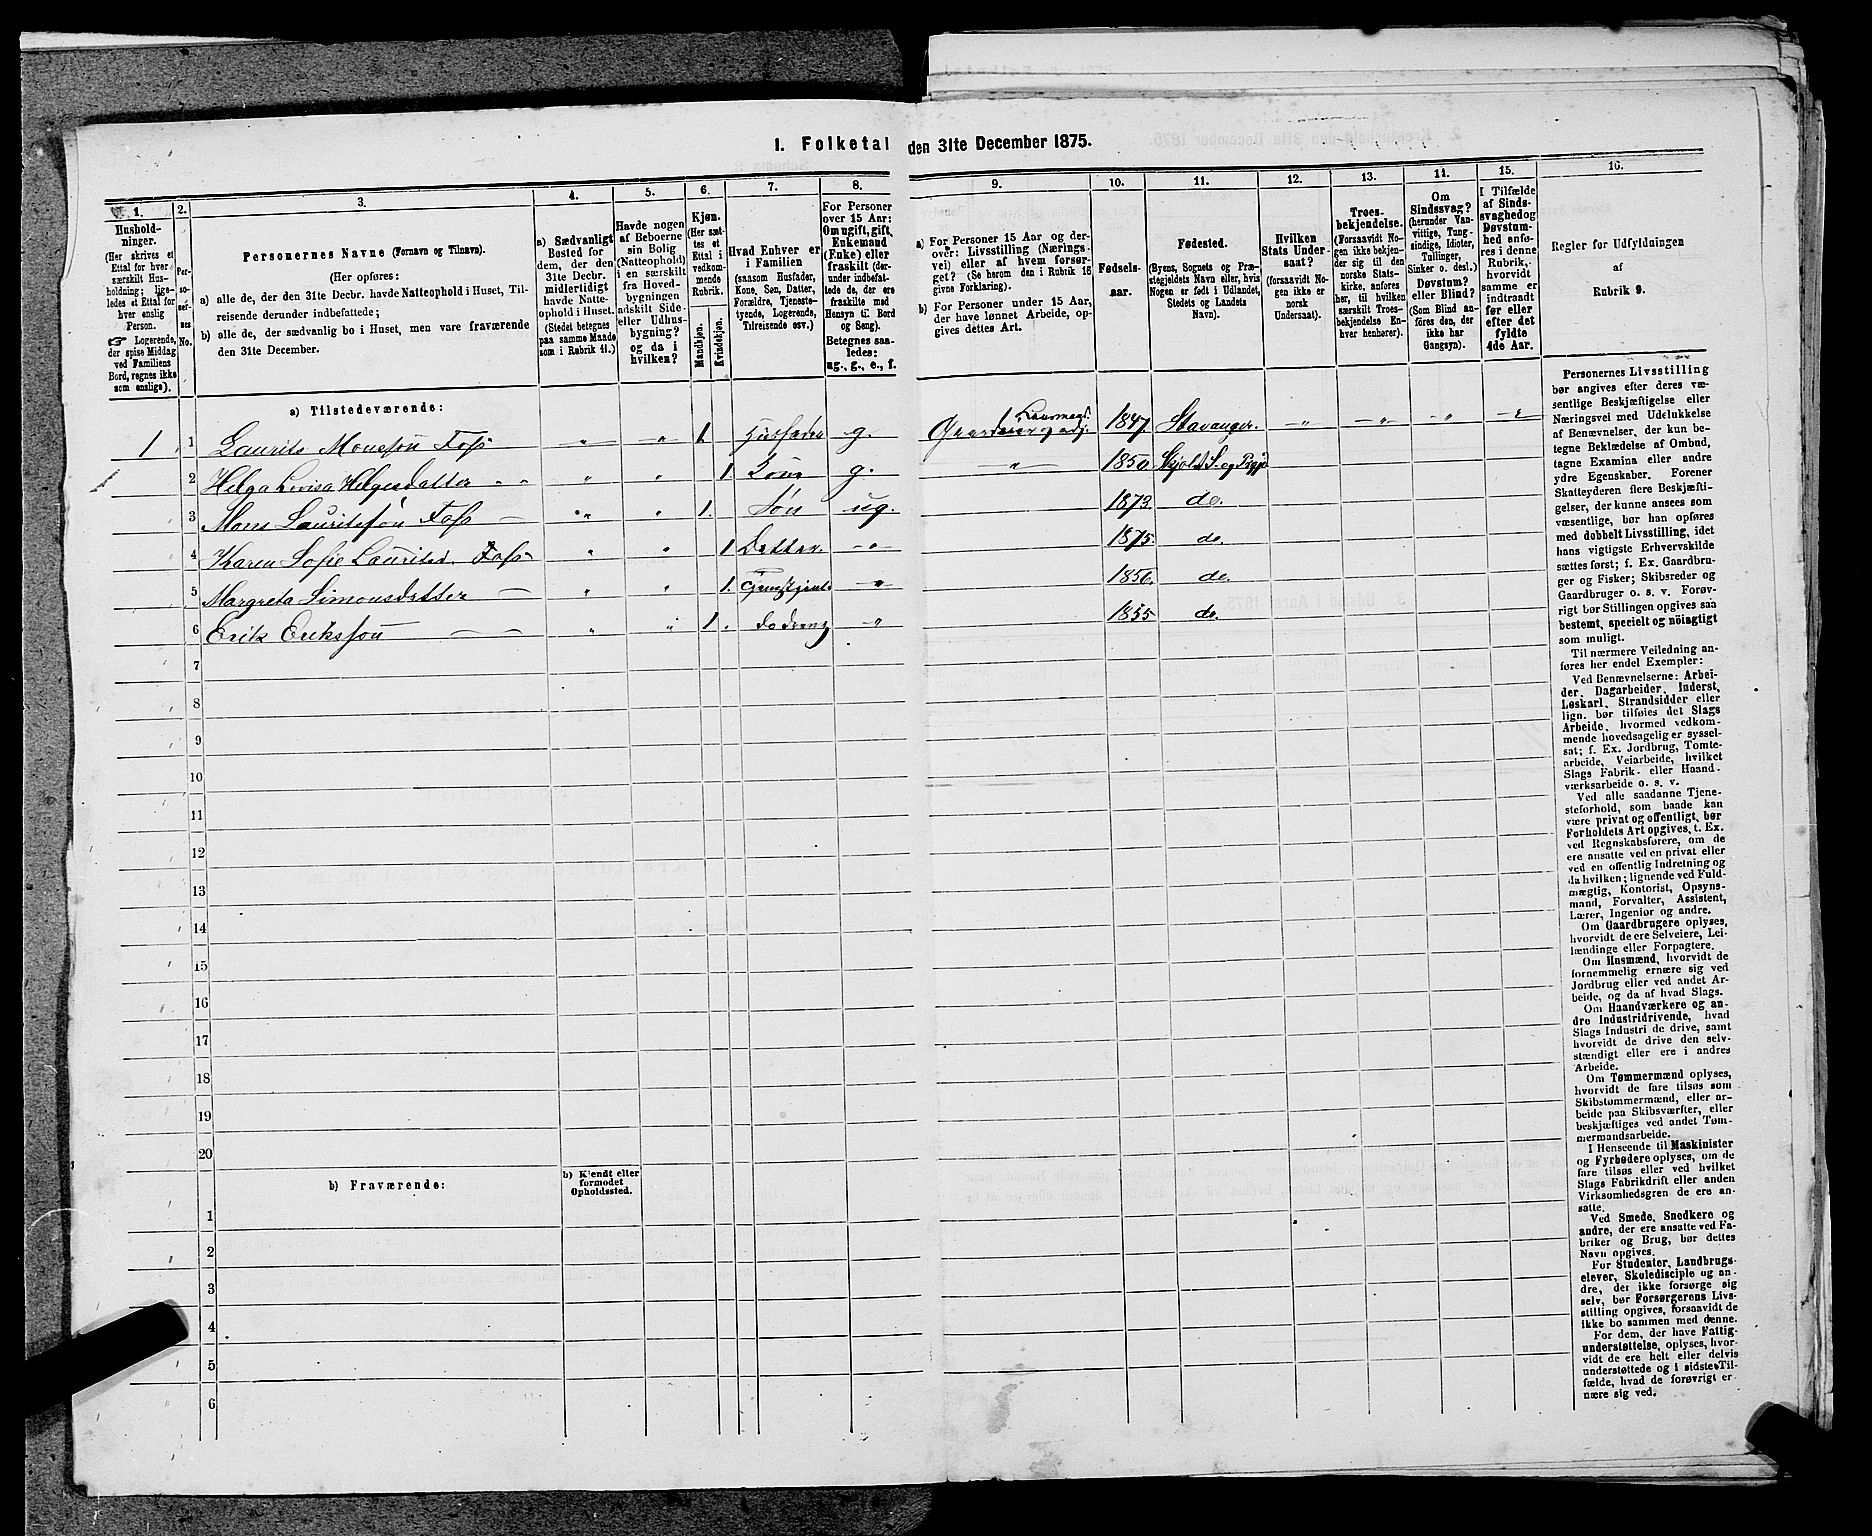 I. Folketal den 31te December 1875.
1.
Husholdninger.
(Her skrives et
Ettal for hver
særskilt Husholdning;
ligeledes et Ettal for
hver enslig
Person.
☞ Logerende,
der spise Middag
ved Familiens
Bord, regnes ikke
som enslige).
2.
Personernes
No.
3.
Personernes Navne (Fornavn og Tilnavn).
(Her opføres:
a) alle de, der den 31te Decbr. havde Natteophold i Huset, Tilreisende
derunder indbefattede;
b) alle de, der sædvanlig bo i Huset, men vare fraværende
den 31te December.
4.
a) Sædvanligt
Bosted for
dem, der den
31te Decbr.
midlertidigt
havde Natteophold
i Huset.
(Stedet betegnes
paa samme Maade
som i Rubrik 11.)
5.
Havde nogen
af Beboerne
sin Bolig
(Natteophold)
i en særskilt
fra Hovedbygningen
adskilt Side-
eller Udhusbygning?
og da i
hvilken?
6.
Kjøn.
(Her sættes
et
Ettal i
vedkommende
Rubrik.
Mandkjøn.
Kvindekjøn.
7.
Hvad Enhver er
i Familien
(saasom Husfader,
Kone, Søn, Datter,
Forældre, Tjenestetyende,
Logerende,
Tilreisende osv.)
8.
For Personer
over 15 Aar:
Om ugift, gift,
Enkemand
(Enke) eller
fraskilt (derunder
indbefattede
de, der ere
fraskilte med
Hensyn til Bord
og Seng).
Betegnes saaledes:
ug., g., e., f.
9.
a) For Personer 15 Aar og derover:
Livsstilling (Næringsvei)
eller af hvem forsørget?
(Se herom den i Rubrik 16
givne Forklaring).
b) For Personer under 15 Aar,
der have lønnet Arbeide, opgives
dettes Art.
10.
Fødselsaar.
11.
Fødested.
(Byens, Sognets og Præstegjeldets
Navn eller, hvis
Nogen er født i Udlandet,
Stedets og Landets
Navn).
12.
Hvilken
Stats Undersaat?
(forsaavidt Nogen
ikke er
norsk
Undersaat).
13.
Troesbekjendelse.
(Forsaavidt Nogen
ikke bekjender
sig til den
norske Statskirke,
anføres
her, til hvilken
særskilt Troesbekjendelse
Enhver
henhører).
14.
Om
Sindssvag?
(herunder Vanvittige,
Tungsindige,
Idioter,
Tullinger,
Sinker o. desl.)
Døvstum?
eller Blind?
(Som Blind anføres
den, der
ikke har
Gangsyn).
15.
I Tilfælde
af Sindssvaghed og
Døvstumhed
anføres
i denne
Rubrik,
hvorvidt
samme er
indtraadt
før eller
efter det
fyldte
4de Aar.
16.
Regler for Udfyldningen
af
Rubrik 9.
a) Tilstedeværende:
1 1 Laurits Monssøn Foss " " 1 Husfader g. Gaardeier og 1847 Stavanger. " " " "
2 Helga Lovisa Helgesdatter " " " " 1. Kone g. " 1850
3 Mons Lauritssøn Foss — " " 1. Søn ug. 1873. do.
4 Karen Sofie Lauritsd. Foss " " 1 Datter. " 1875. do.
5 Margreta Simonsdatter — " " 1. " 1850. do.
6 Erik Erikssøn — — " " 1. " 1855 do.
7
8
9
10
11
12
13
14
15
16
17
18
19
20
b) Fraværende:
b) Kjendt eller
formodet
Opholdssted.
1
2
3
4
5
6
Personernes Livsstilling
bør angives efter deres væsentlige
Beskjæftigelse eller
Næringsvei med Udelukkelse
af Benævnelser, der kun betegne
Beklædelse af Ombud,
tagne Examina eller andre
ydre Egenskaber. Forener
Skatteyderen flere Beskjæftigelser,
der kunne ansees som
væsentlige, bør han opføres
med dobbelt Livsstilling, idet
hans vigtigste Erhvervskilde
sættes først; f. Ex. Gaardbruger
og Fisker; Skibsreder og
Gaardbruger o. s. v. Forøvrigt
bør Stillingen opgives saa
bestemt, specielt og nöiagtigt
som muligt.
Til nærmere Veiledning anføres
her endel Exempler:
Ved Benævnelserne: Arbeider,
Dagarbeider, Inderst,
Løskarl, Strandsidder eller
lign. bør tilføies det Slags
Arbeide, hvormed vedkommende
hovedsagelig er sysselsat;
f. Ex. Jordbrug, Tomtearbeide,
Veiarbeide, hvilket
Slags Fabrik- eller Haandværksarbeide
o. s. v.
Ved alle saadanne Tjenesteforhold,
som baade kan
være privat og offentligt, bør
Forholdets Art opgives, t. Ex.
ved Regnskabsførere, om de
ere ansatte ved en privat eller
ved en offentlig Indretning og
da hvilken; lignende ved Fuldmægtig,
Kontorist, Opsynsmand,
Forvalter, Assistent,
Lærer, Ingeniør og andre.
Om Gaardbrugere oplyses,
hvorvidt de ere Selveiere, Leilændinge
eller Forpagtere.
Om Husmænd, hvorvidt de
fornemmelig ernære sig ved
Jordbrug eller ved andet Arbeide,
og da af hvad Slags.
Om Haandværkere og andre
Industridrivende, hvad
Slags Industri de drive, samt
hvorvidt de drive den selvstændigt
eller ere i andres
Arbeide.
Om Tømmermænd oplyses,
hvorvidt de fare tilsøs som
Skibstømmermænd, eller arbeide
paa Skibsværfter, eller
beskjæftiges ved andet Tømmermandsarbeide.
I Henseende til Maskinister
og Fyrbødere oplyses, om de
fare tilsøs eller ved hvilket
Slags Fabrikdrift eller anden
Virksomhedsgren de ere ansatte.
Ved Smede, Snedkere og
andre, der ere ansatte ved Fabriker
og Brug, bør dettes
Navn opgives.
For Studenter, Landbrugselever,
Skoledisciple og andre,
der ikke forsørge sig
selv, bør Forsørgerens Livsstilling
opgives, forsaavidt de
ikke bo sammen med denne.
For dem, der have Fattigunderstøttelse,
oplyses, hvorvidt
de ere helt eller delvis
understøttede og i sidste Tilfælde,
hvad de forøvrigt ernære
sig ved.